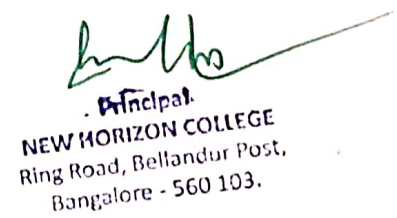 Principal
NEW HORIZON COLLEGE
Ring Road, Bellandur Post,
Bangalore - 560 103.